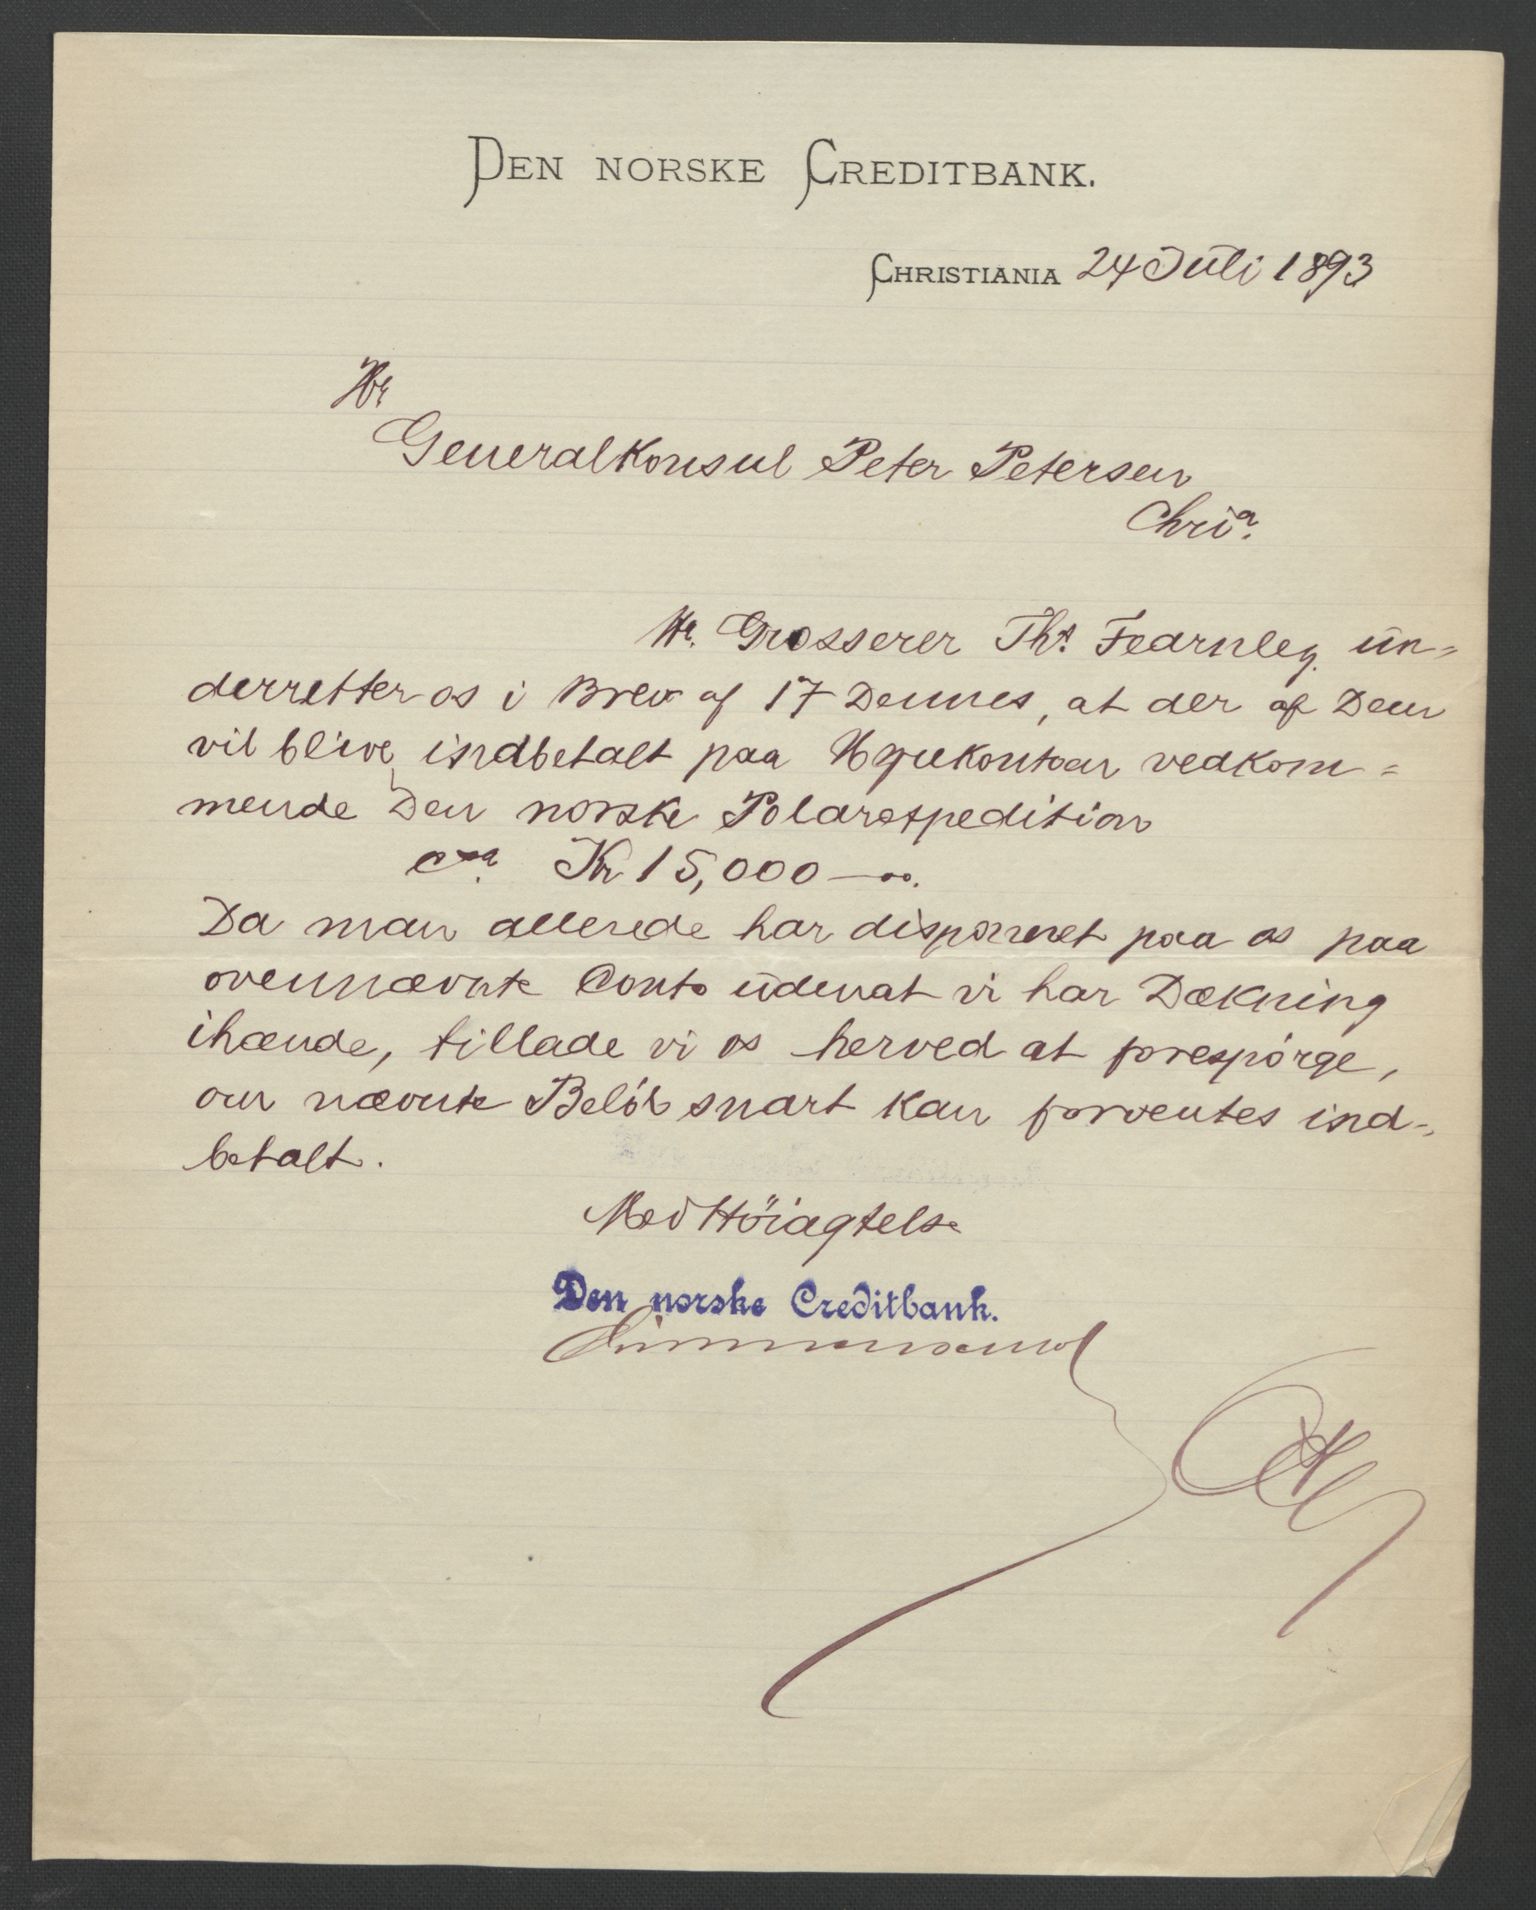 DEN NORSKE CREDITBANK.
CHRISTIANIA 24 Juli 1893
Hr
Generalkonsul Peter Petersen
Chria.
Hr. Grosserer Ths. Fearnley un=
derretter os i Brev af 17 Dennes, at der af Dem
vil blive indbetalt paa vedkom=
mende Den norske Polarexpedition
cra. Kr 15,000 —
Da man allerede har disponeret paa os paa
ovennævnte Conto udenat vi har Dækning
ihænde, tillade vi os herved at forespørge,
om nævnte Beløb snart kan forventes ind=
betalt.
Med Höiagtelse
Den norske Creditbank.